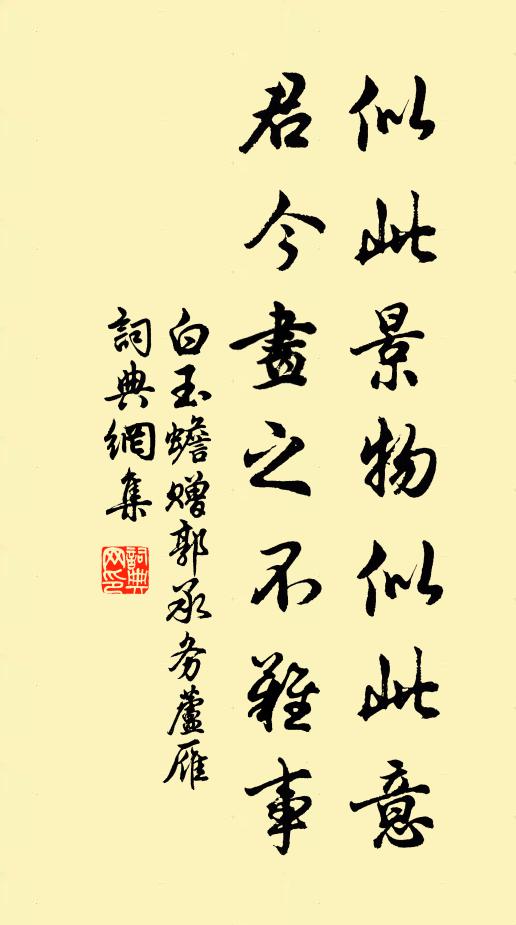 似此景物似此意
君今畫之不難事
白玉蟾贈郭承务蘆雁
詞典網集
詞典网印